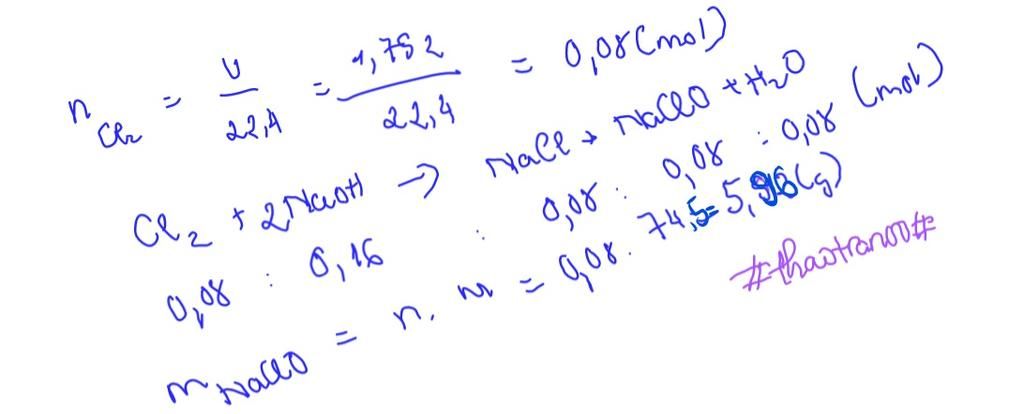 n Cl₂ = V/22,4 = 1,792/22,4 = 0,08 (mol)
Cl₂ + 2NaOH → NaCl + NaClO + H₂O
0,08 : 0,16 : 0,08 : 0,08 : 0,08 (mol)
m NaClO = n. M = 0,08. 74,5 = 5,96 (g)
#thaotran00#